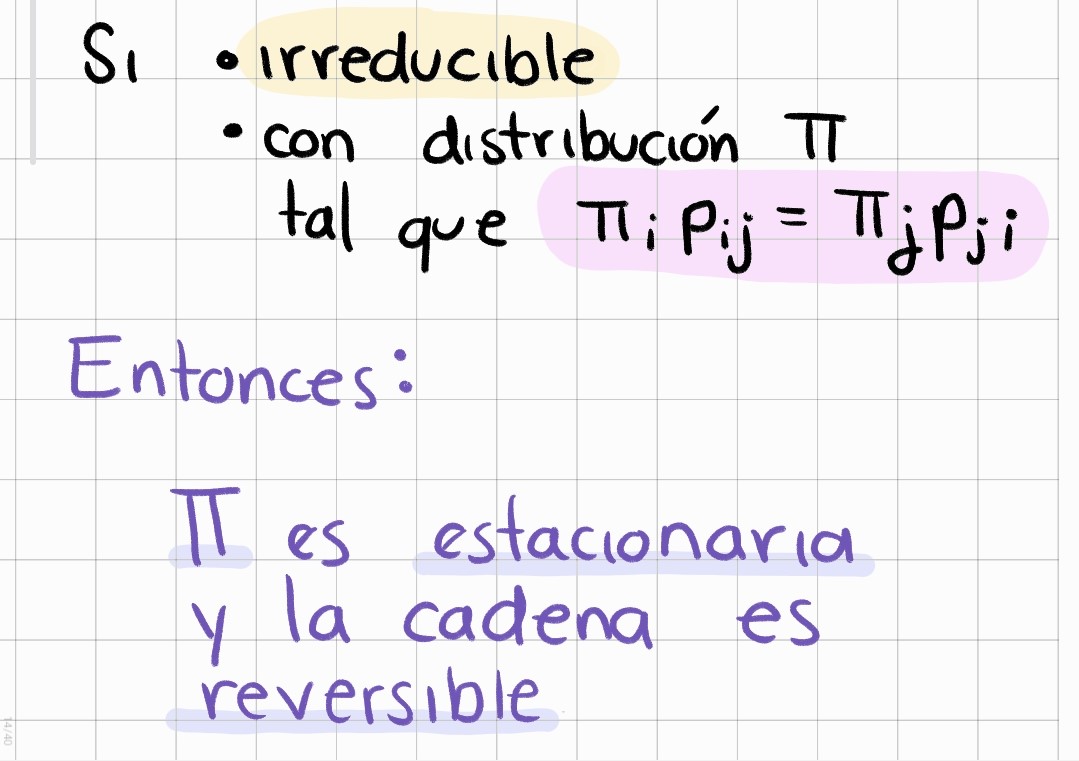 Si • irreducible
• con distribución π
tal que π i p ij = π j p ji
Entonces:
π es estacionaria
y la cadena es
reversible
14/40